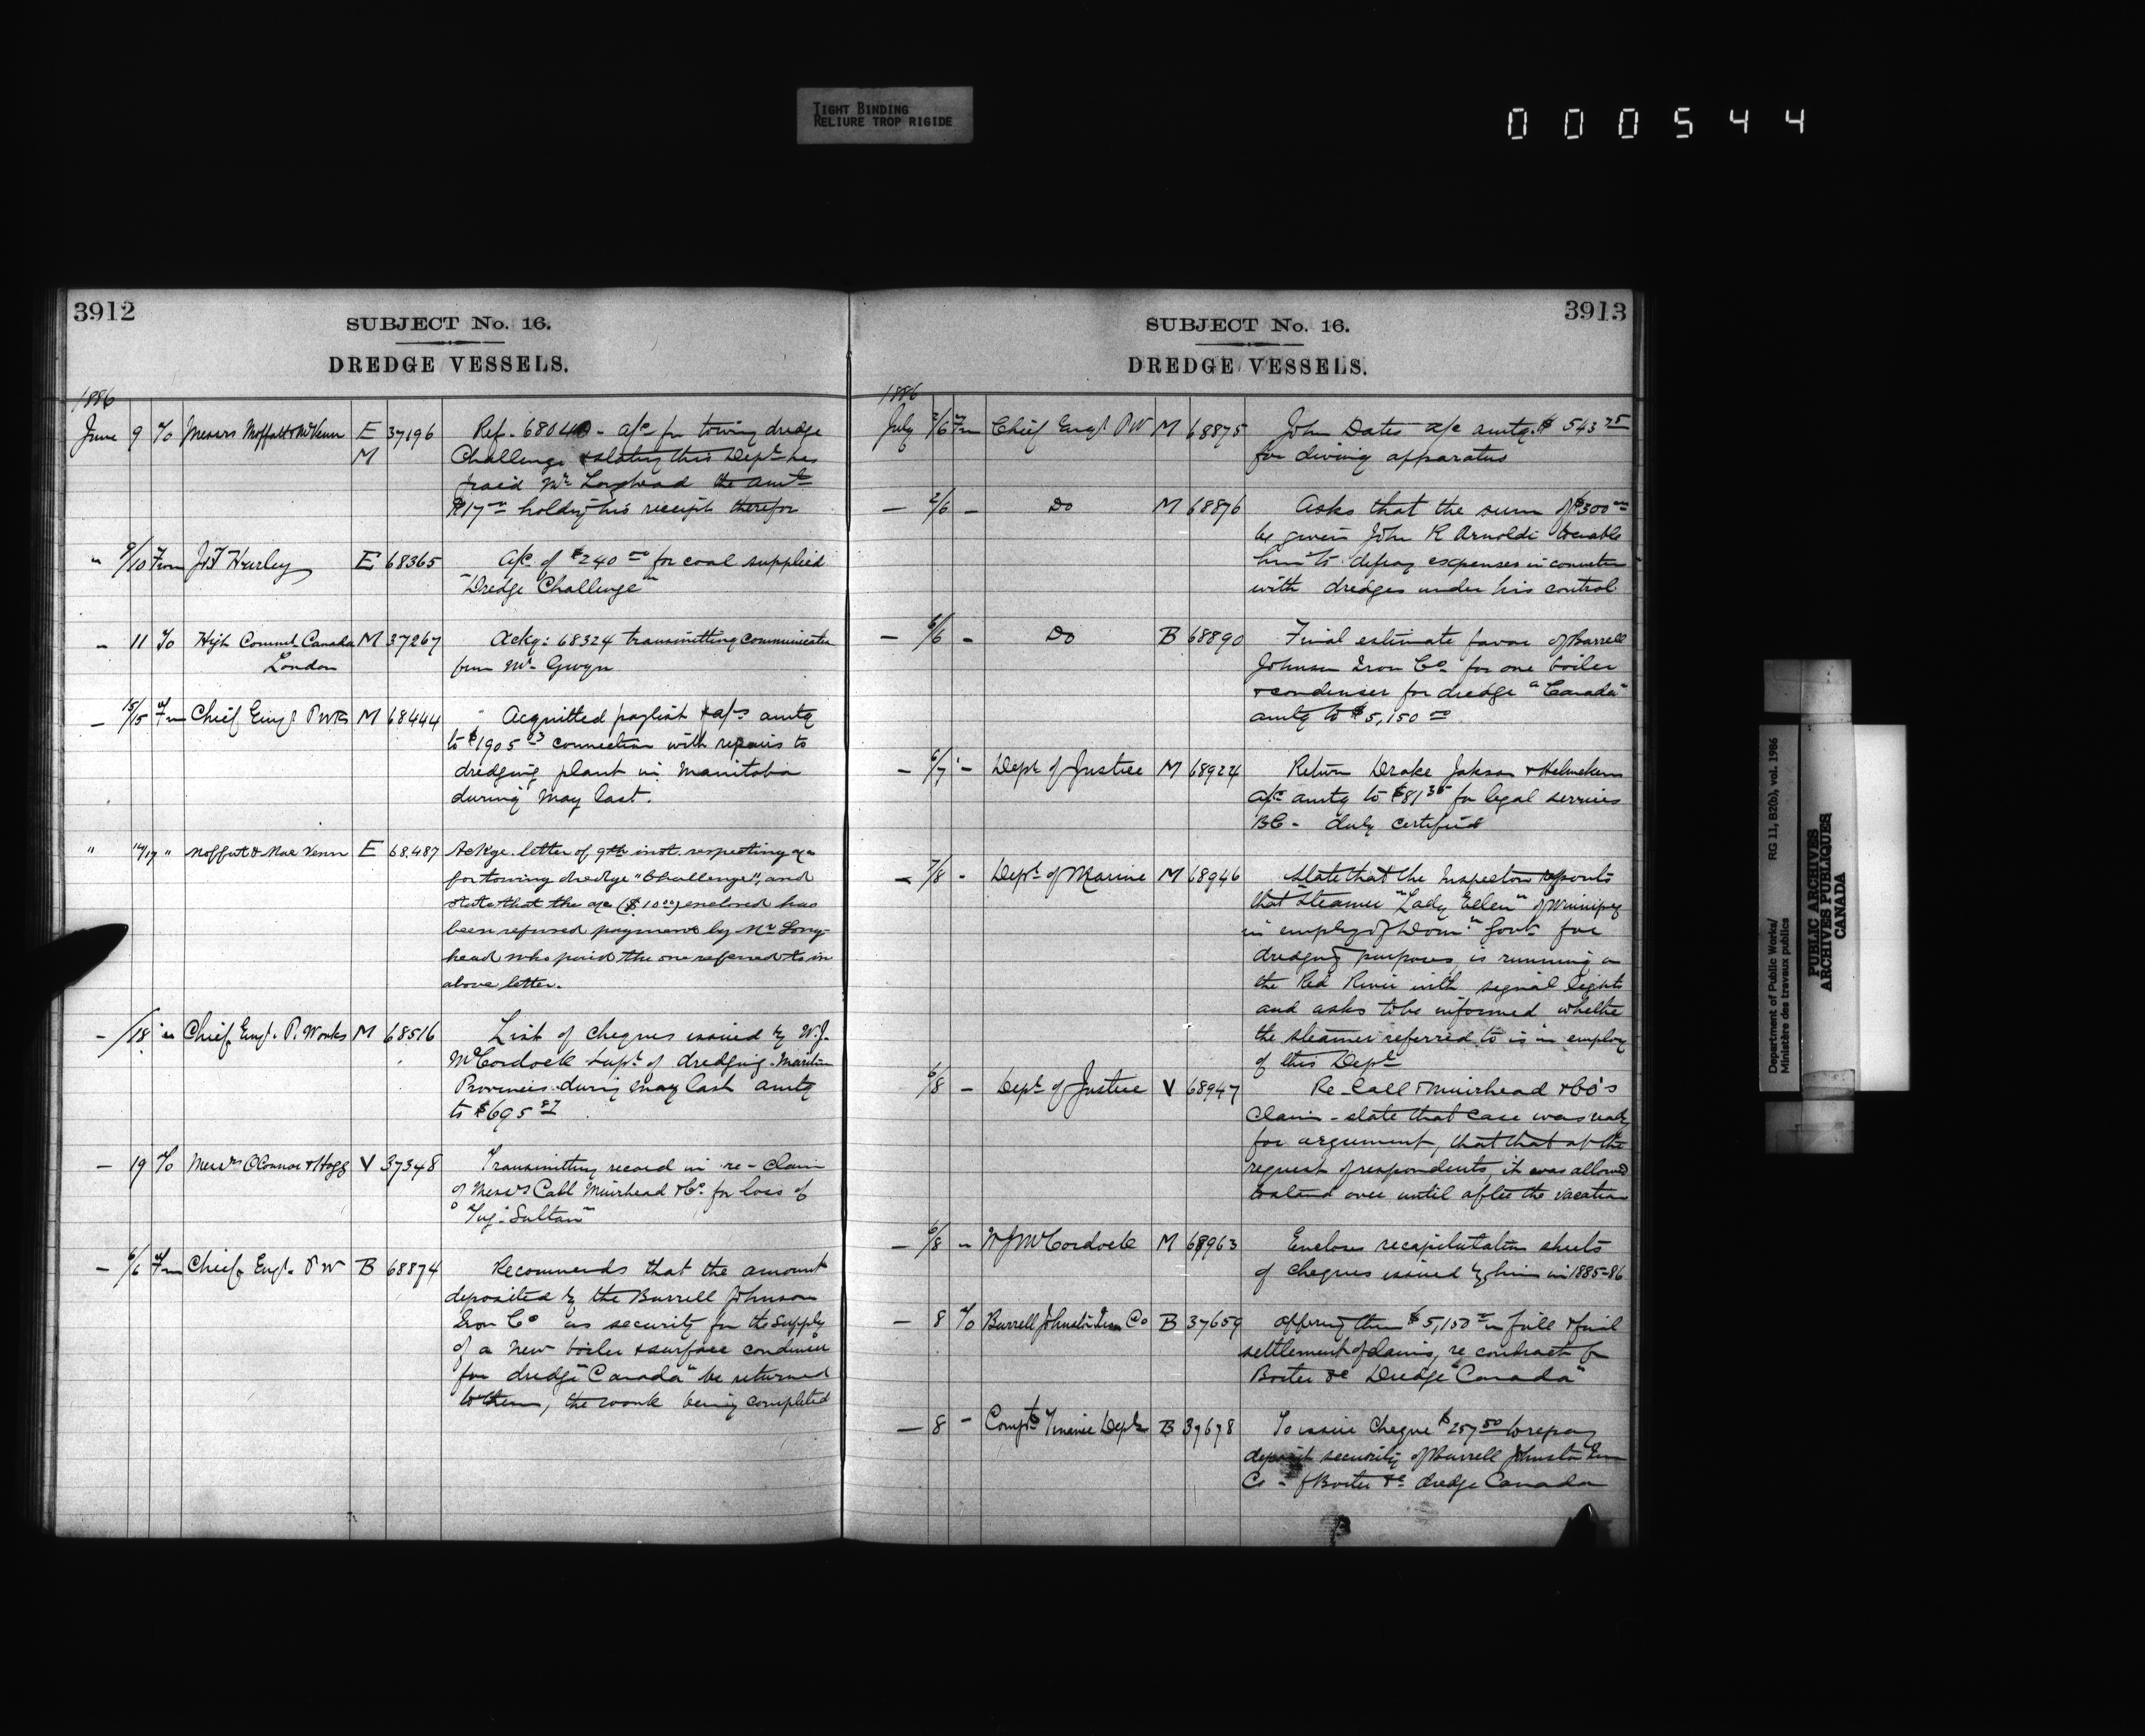 TIGHT BINDING
RELIURE TROP RIGIDE
000544
3912
SUBJECT No. 16.
DREDGE VESSELS.
1886
June 9 To Messrs Moffatt & McVenn E 37196 Ref. 68040 - a/c for towing dredge
M Challenge & stating this Dept has
paid Mr Longhead the amt
$17 00 holding his receipt therefor
" 9/10 From J F Hurley E 68365 A/c of $240 00 for coal supplied
"Dredge Challenge"
- 11 To High Commr Canada M 37267 Ackg: 68324 transmitting communication
London from Mr Gwyn
- 15/15 Fm Chief Engr P Wks M 68444 Acquitted paylist & a/cs amtg
to $1905 03 connection with repairs to
dredging plant in Manitoba
during May last.
" 14/17 " Moffatt & Mac Venn E 68.487 Ackge. letter of 9th inst. respecting a/c
for towing dredge "Challenge", and
state that the a/c ($10 00) enclosed has
been refused payment by Mr Long-
head who paid the one referred to in
above letter.
- /18 " Chief Engr. P. Works M 68516 List of cheques issued by W.J.
McCordock Supt. of dredging - Maritime
Provinces - during May last amtg
to $695 87
- 19 To Messrs O'Connor & Hogg V 37348 Transmitting record in re - Claim
of Messrs Call Muirhead & Co. for loss of
"Tug - Sultan"
- 6/6 Fm Chief Engr. P W B 68874 Recommends that the amount
deposited by the Burrell Johnson
Iron Co as security for the supply
of a new boiler & surface condenser
for dredge "Canada" be returned
to them, the work being completed
3913
SUBJECT No. 16.
DREDGE VESSELS.
1886
July 2/6 Fm Chief Engr P W M 68875 John Dates a/c amtg $543 75
for diving apparatus
- 2/6 - Do M 68876 Asks that the sum of $300 00
be given John R Arnoldi to enable
him to defray expenses in connection
with dredges under his control
- 6/6 - Do B 68890 Final estimate favor of Burrell
Johnson Iron Co. for one boiler
& condenser for dredge "Canada"
amtg to $5,150 00
- 6/7 - Dept of Justice M 68924 Return Drake Jakson & Helmcken
a/c amtg to $81 35 for legal services
BC - duly certified
- 7/8 - Dept of Marine M 68946 State that the Inspector reports
that Steamer "Lady Ellen" of Winnipeg
in employ of Domn Govt for
dredging purposes is running on
the Red River with signal lights
and asks to be informed whether
the steamer referred to is in employ
of this Dept
6/8 - Dept of Justice V 68947 Re - Call & Muirhead & Co's
Claim - state that case was ready
for argument, that that at the
request of respondents, it was allowed
to stand over until after the vacation
- 6/8 - W J McCordock M 68963 Encloses recapitulation sheets
of cheques issued by him in 1885-86
- 8 To Burrell Johnston Iron Co B 37659 offering them $5,150 00 in full & final
settlement of claims, re contract for
Boiler &c Dredge "Canada"
- 8 - Compt. Finance Dept B 39678 To issue Cheque $257 50 to repay
deposit security of Burrell Johnston Iron
Co - f Boiler &c dredge Canada
Department of Public Works/
Ministère des travaux publics
RG 11, B2(b), vol. 1986
PUBLIC ARCHIVES
ARCHIVES PUBLIQUES
CANADA